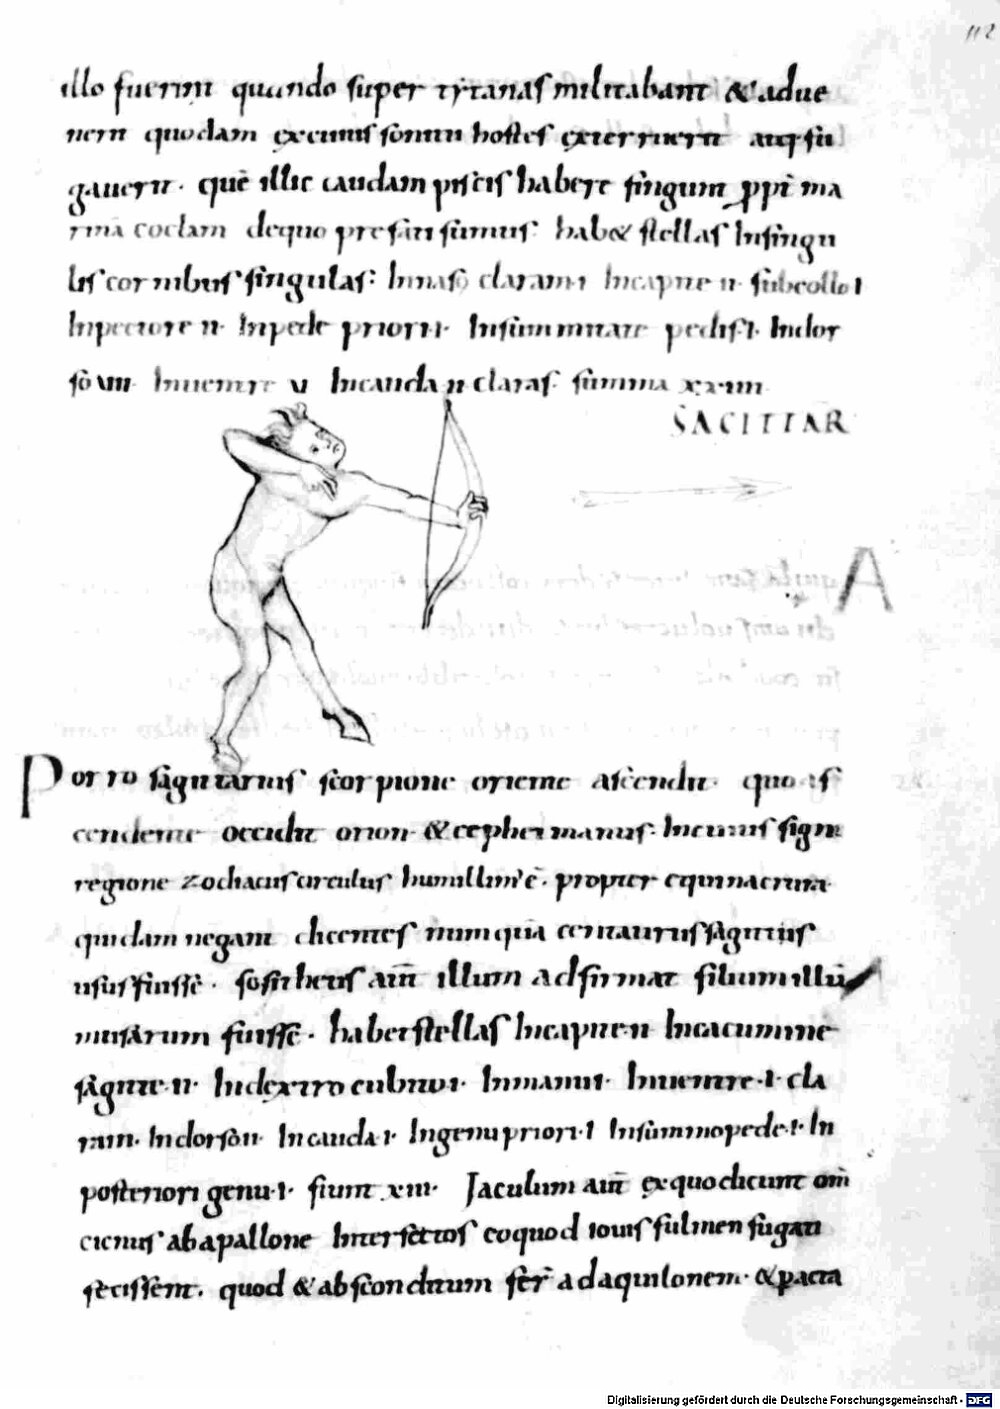 112
illo fuerint quando super tytanas militabant & adue
nert quodam excitius sonitu hostes exterruert atq; fu
gauert. quē illic caudam piscis habere fingunt ꝓpt ma
rinā coclam dequo prefati sumus. hab& stellas Insingu
lis cornibus singulas: Innaso claram ı Incapite ıı subcollo ı
Inpectore ıı. Inpede priori ı. Insummitate pedis ı. Indor
so vıı. Inuentre v Incauda ıı claras. summa xxıııı.
SAGITTAR
Porro sagittarius scorpione oriente ascendit. quo
cendente occidit orion & cephei manus: Incuius signi
regione zodiacus circulus humillim' ē. propter
quidam negant dicentes numquā centaurus sagittis
usus fuisse. sositheus aut illum adfirmat filium illū
musarum fuisse. habet stellas Incapite ıı Incacumine
sagitte ıı. Indextro cubito ı. Inmanu ı. Inuentre ı. cla
ram. Indorso ıı. Incauda ı. Ingenu priori ı Insummo pede ı. In
posteriori genu ı. fiunt xııı. Jaculum aut ex quo dicunt
ab apallone Interfectos eo quod iouis fulmen fugati
fecissent. quod & absconditum fert ad aquilonem. & pacta
Digitalisierung gefördert durch die Deutsche Forschungsgemeinschaft - DFG